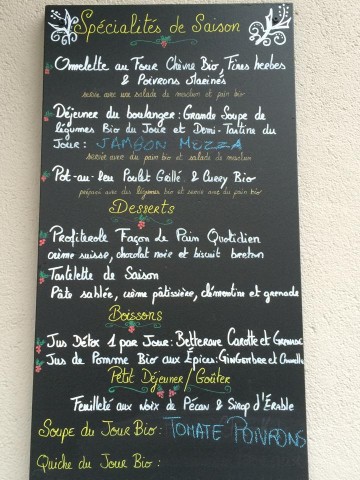 Spécialités de Saison
Omelette au Four Chèvre Bio, Fines herbes
& Poivrons Marinés
servie avec une salade de mesclun et pain bio
Déjeuner du boulanger: Grande Soupe de
légumes Bio du Jour et Demi-Tartine du
Jour: JAMBON MUZZA
servie avec du pain bio et salade de mesclun
Pot-au-feu Poulet Grillé & Curry Bio
préparé avec des légumes bio et servie avec du pain bio
Desserts
Profiterole Façon Le Pain Quotidien
crème suisse, chocolat noir et biscuit breton
Tartelette de Saison
Pâte sablée, crème pâtissière, clémentine et grenade
Boissons
Jus Détox 1 par Jour: Betterave Carotte et Grenade
Jus de Pomme Bio aux Épices: Gingembre et Cannelle
Petit Déjeuner/Goûter
Feuilleté aux noix de Pécan & Sirop d'Érable
Soupe du Jour Bio: TOMATE POIVRONS
Quiche du Jour Bio :